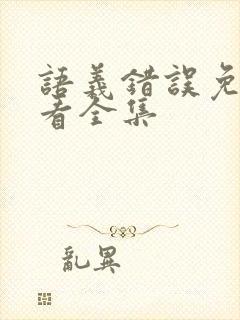 語義錯誤免
看全集
亂異